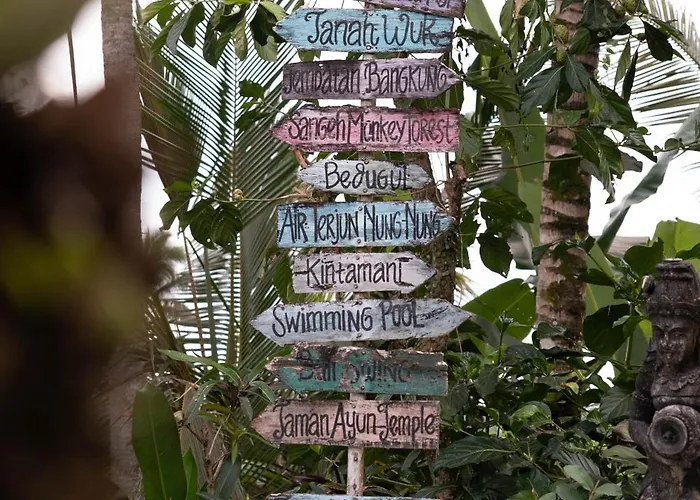 Tanah Wuk
Jempatan Bangkung
Sangeh Monkey Forest
Bedugul
Air Terjun Nung Nung
Kintamani
Swimming Pool
Bali Swing
Taman Ayun Temple